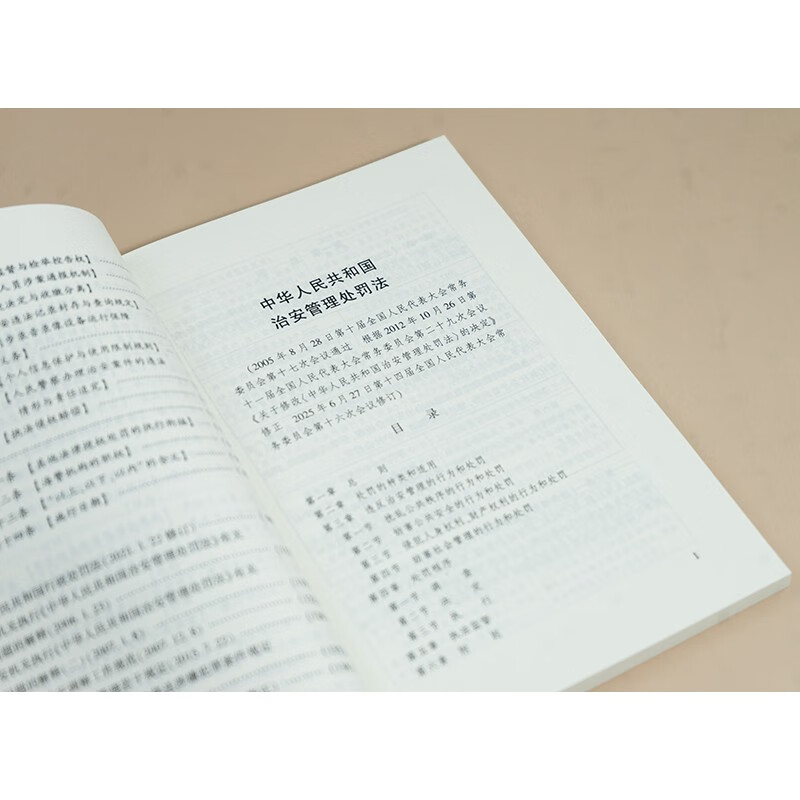 监督与检举控告权】
人员涉案通报机制】
决定与收缴分离】
安违法记录封存与查询规定】
同步录音录像设备运行保障
义务】
个人信息保护与使用限制规则】
【人民警察办理治安案件的违法
情形与责任追究】
【执法侵权赔偿】
【其他法律授权处罚的执行衔接】
【海警机构的职权】
【“以上、以下、以内”的含义】
十四条 【施行日期】
民共和国行政处罚法》(2021.1.22修订)
民共和国治安管理处罚法》有关
关执行《中华人民共和国治安管理处罚法》有关
(2007.1.4)
2007.12.4)
中华人民共和国
治安管理处罚法
(2005年8月28日第十届全国人民代表大会常务
委员会第十七次会议通过 根据2012年10月26日第
十一届全国人民代表大会常务委员会第二十九次会议
《关于修改〈中华人民共和国治安管理处罚法〉的决定》
修正 2025年6月27日第十四届全国人民代表大会常
务委员会第十六次会议修订)
目 录
第一章 总 则
第二章 处罚的种类和适用
第三章 违反治安管理的行为和处罚
第一节 扰乱公共秩序的行为和处罚
第二节 妨害公共安全的行为和处罚
第三节 侵犯人身权利、财产权利的行为和处罚
第四节 妨害社会管理的行为和处罚
第四章 处罚程序
第一节 调 查
第二节 决 定
第三节 执 行
第五章 执法监督
第六章 附 则
1